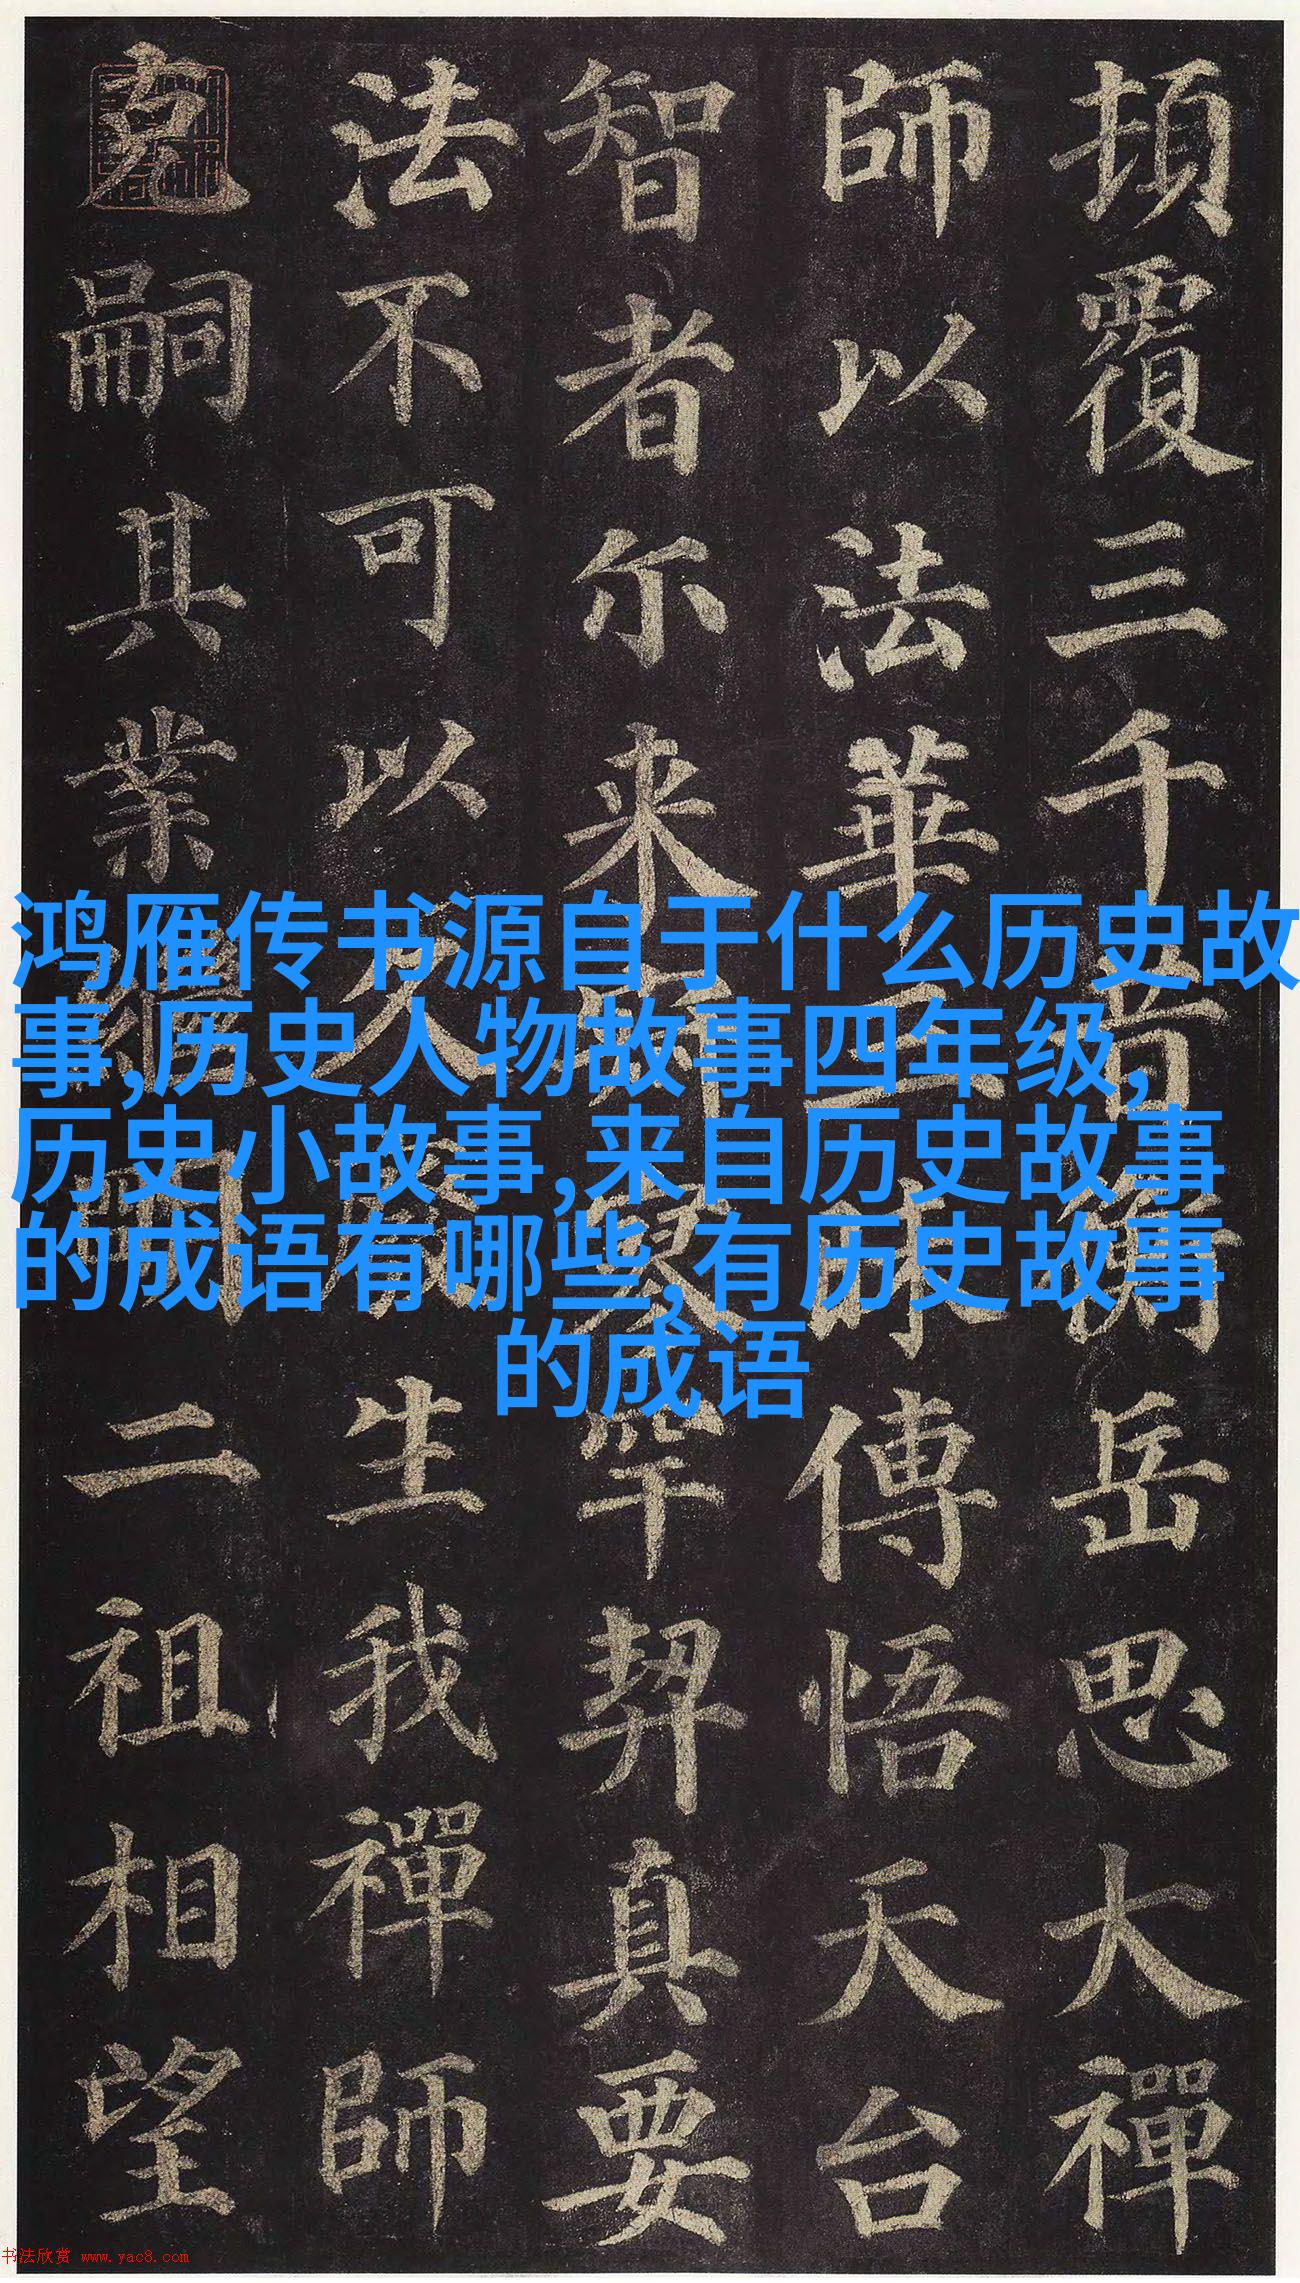 頓覆三千昔衡岳思大禪
師以法華三昧傳悟天台
智者尓来寂寥罕契真要
法不可以久廢生我禪師
克嗣其業繼明二祖相望
鸿雁传书源自于什么历史故
事,历史人物故事四年级,
历史小故事,来自历史故事
的成语有哪些,有历史故事
的成语
书法欣赏 www.yac8.com